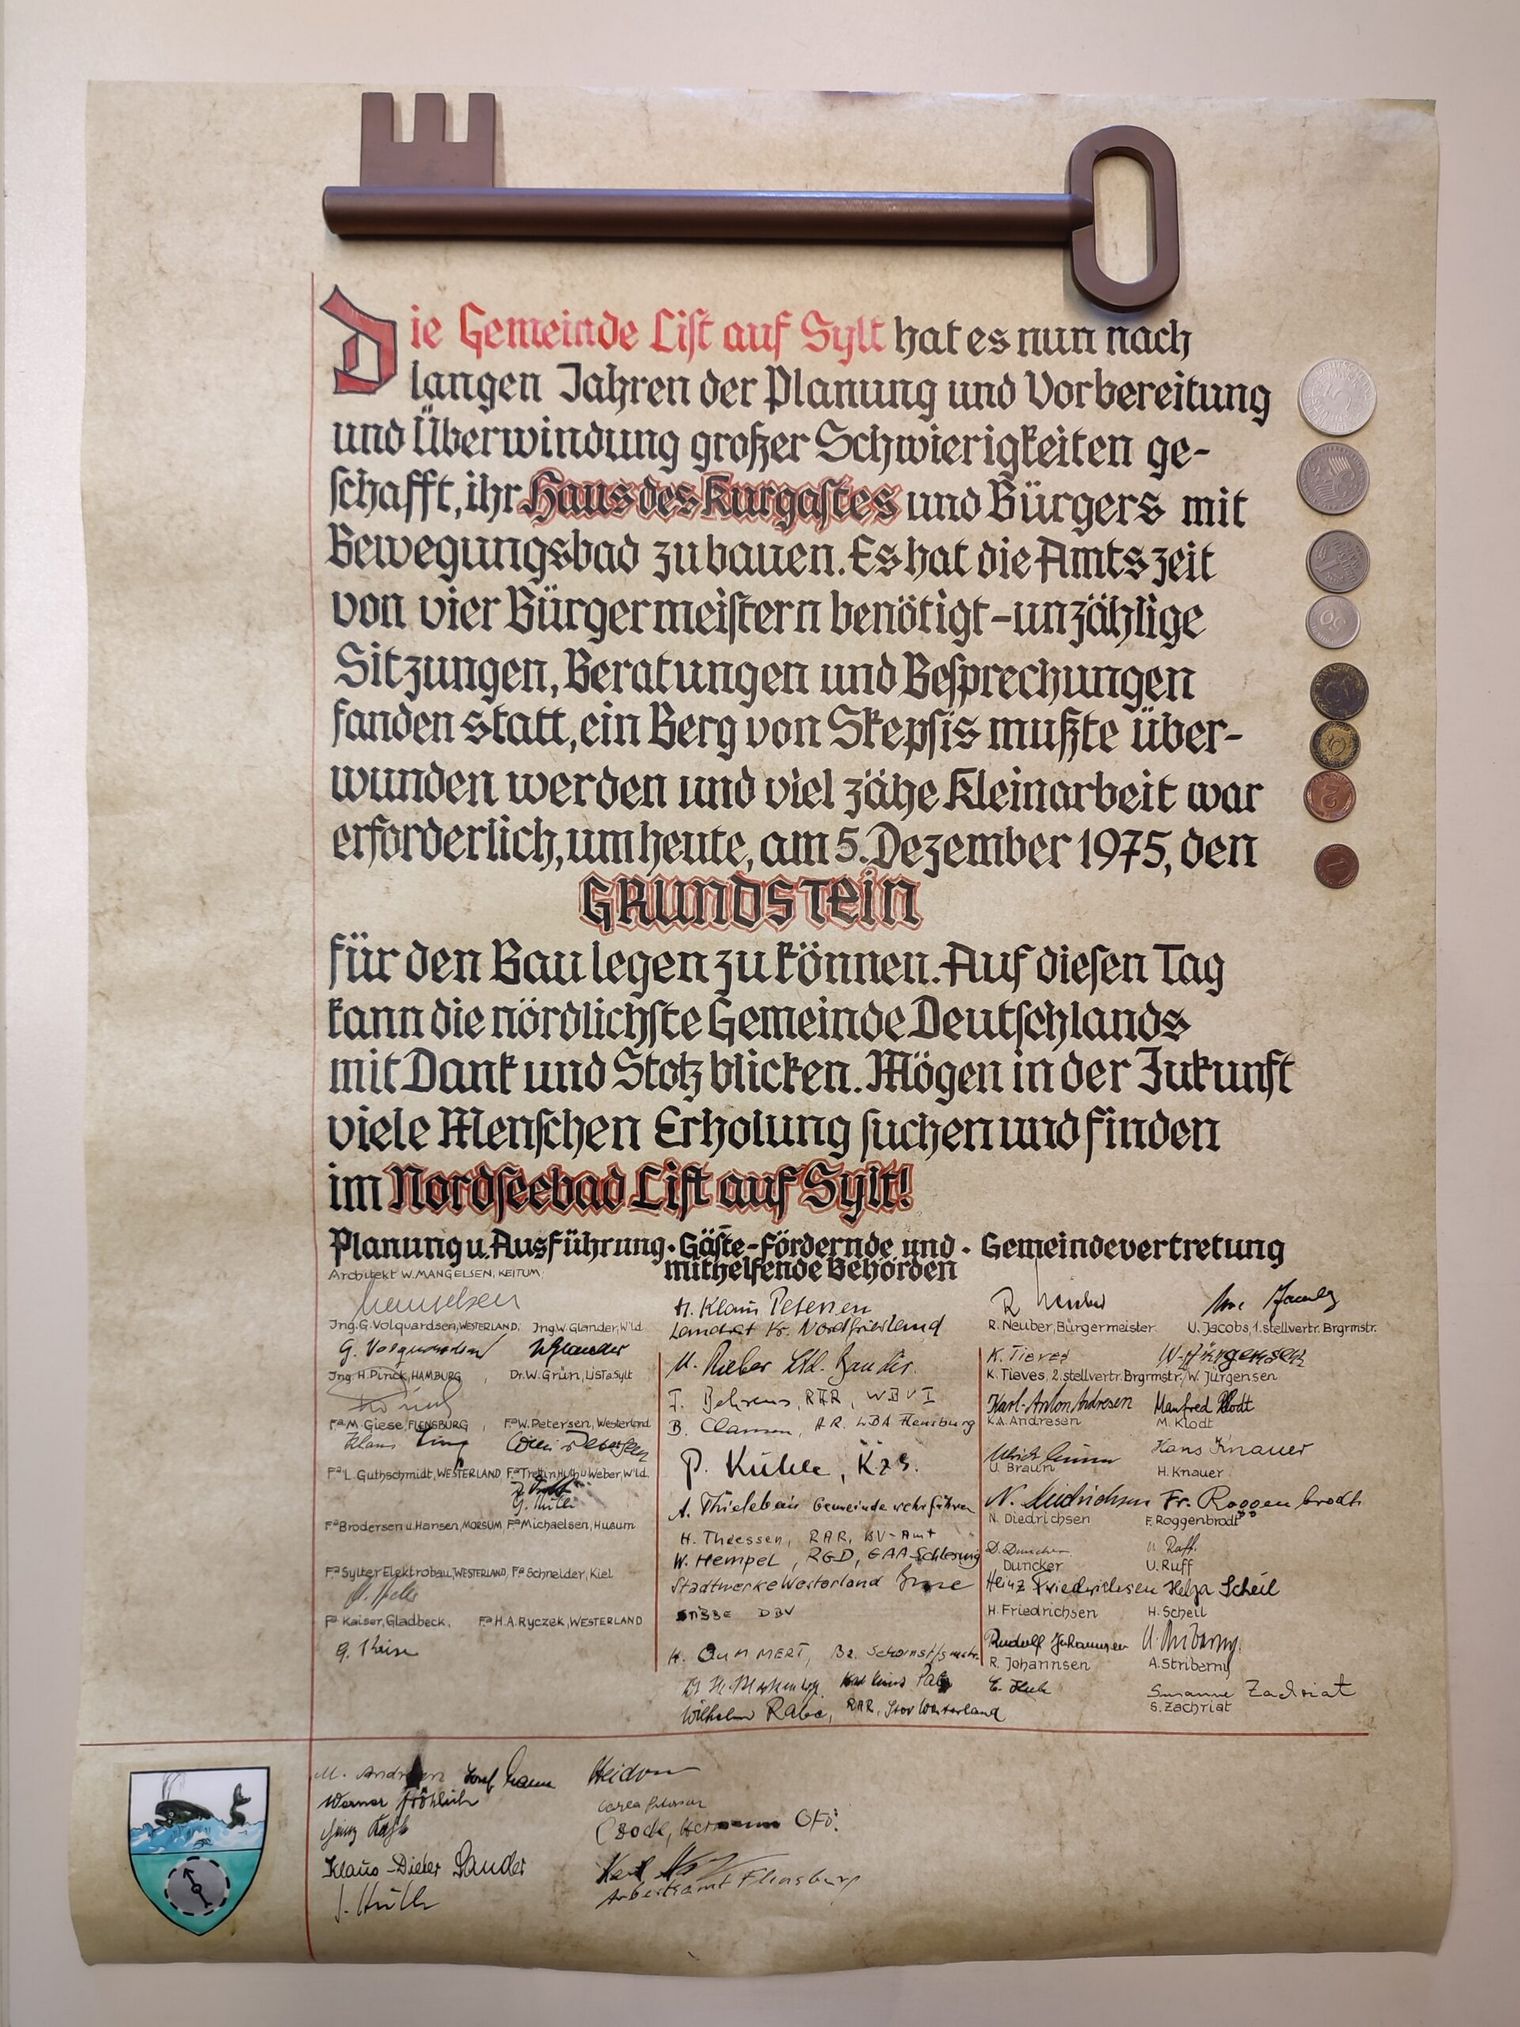 Die Gemeinde List auf Sylt hat es nun nach
langen Jahren der Planung und Vorbereitung
und Überwindung großer Schwierigkeiten ge-
schafft, ihr Haus des Kurgastes und Bürgers mit
Bewegungsbad zu bauen. Es hat die Amtszeit
von vier Bürgermeistern benötigt - unzählige
Sitzungen, Beratungen und Besprechungen
fanden statt, ein Berg von Skepsis mußte über-
wunden werden und viel zähe Kleinarbeit war
erforderlich, um heute, am 5. Dezember 1975, den
GRUNDSTEIN
für den Bau legen zu können. Auf diesen Tag
kann die nördlichste Gemeinde Deutschlands
mit Dank und Stolz blicken. Mögen in der Zukunft
viele Menschen Erholung suchen und finden
im Nordseebad List auf Sylt!
5
50
5
2
1
Planung u. Ausführung · Gäste-Fördernde und · Gemeindevertretung
mithelfende Behörden
Architekt W. MANGELSEN, KEITUM
Ing. G. Volquardsen, WESTERLAND, Ing. W. Glander, W'ld.
G. Volquardsen WGlander
Ing. H. Pinck, HAMBURG, Dr. W. Grün, LIST a. Sylt
Fa M. Giese, FLENSBURG, Fa W. Petersen, Westerland
Klaus
Fa L. Guthschmidt, WESTERLAND Fa Trettin Huth u Weber, W'ld.
Fa Brodersen u. Hansen, MORSUM Fa Michaelsen, Husum
Fa Sylter Elektrobau, WESTERLAND, Fa Schneider, Kiel
Fa Kaiser, Gladbeck, Fa H. A. Ryczek, WESTERLAND
H. Klaus Petersen
Landrat Kr. Nordfriesland
F. Behrens, RAR, WBV I
B. Clausen, AR. LBA Flensburg
P. Kühle, Kzs.
A. Thielebein Gemeindewehrführer
H. Thiessen, RAR, BV-Amt
W. Hempel, RGD, GAA Schleswig
Stadtwerke Westerland
DBV
Wilhelm Rabe, RAR, Westerland
R. Neuber
R. Neuber, Bürgermeister U. Jacobs, 1. stellvertr. Brgrmstr.
K. Tieves W. Jürgensen
K. Tieves, 2. stellvertr. Brgrmstr., W. Jürgensen
Karl-Anton Andresen Manfred Klodt
K.A. Andresen M. Klodt
Hans Knauer
U. Braun H. Knauer
N. Diedrichsen Fr. Roggenbrodt
N. Diedrichsen F. Roggenbrodt
D. Duncker U. Ruff
Duncker U. Ruff
Heinz Friedrichsen Helga Scheil
H. Friedrichsen H. Scheil
Rudolf Johannsen A. Striberny
R. Johannsen A. Striberny
Susanne Zachriat
S. Zachriat
M. Andresen
Werner Fröhlich
Klaus-Dieter Sander
Arbeitsamt Flensburg